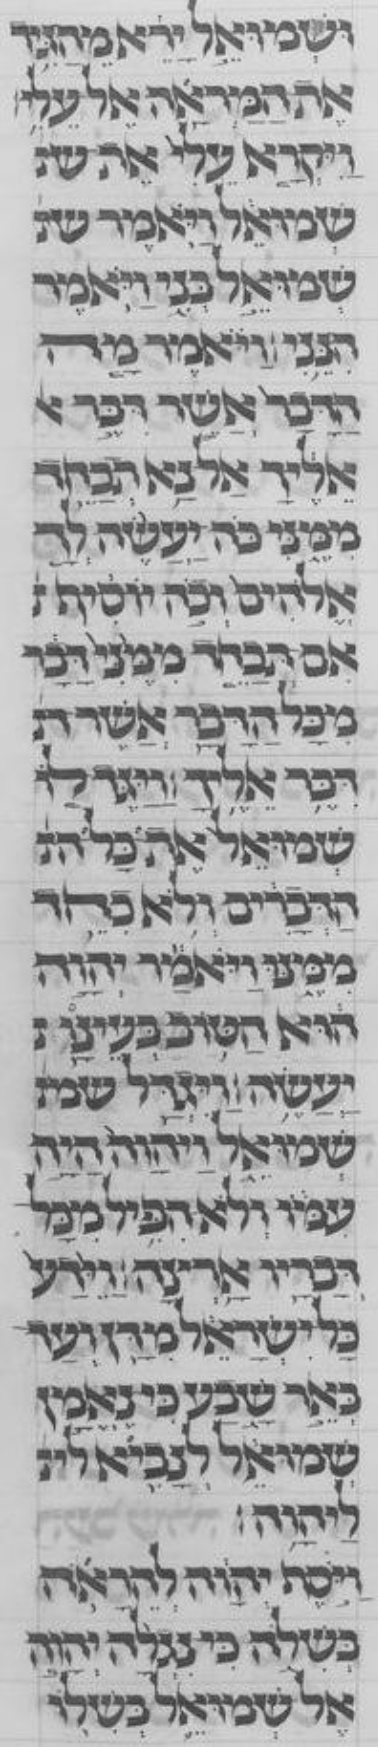 וּשְׁמוּאֵל יָרֵא מֵהַגִּיד
אֶת הַמַּרְאָה אֶל עֵלִי׃
וַיִּקְרָא עֵלִי אֶת שמ
שְׁמוּאֵל וַיֹּאמֶר שמ
שְׁמוּאֵל בְּנִי וַיֹּאמֶר
הִנֵּנִי׃ וַיֹּאמֶר מָה
הַדָּבָר אֲשֶׁר דִּבֶּר א
אֵלֶיךָ אַל נָא תְכַחֵד
מִמֶּנִּי כֹּה יַעֲשֶׂה לְּךָ
אֱלֹהִים וְכֹה יוֹסִיף
אִם תְּכַחֵד מִמֶּנִּי דָּבָר
מִכָּל הַדָּבָר אֲשֶׁר ד
דִּבֶּר אֵלֶיךָ׃ וַיַּגֶּד לוֹ
שְׁמוּאֵל אֶת כָּל הד
הַדְּבָרִים וְלֹא כִחֵד
מִמֶּנּוּ וַיֹּאמַר יְהוָה
הוּא הַטּוֹב בְּעֵינָו
יַעֲשֶׂה׃ וַיִּגְדַּל שמ
שְׁמוּאֵל וַיהוָה הָיָה
עִמּוֹ וְלֹא הִפִּיל מִכָּל
דְּבָרָיו אָרְצָה׃ וַיֵּדַע
כָּל יִשְׂרָאֵל מִדָּן וְעַד
בְּאֵר שָׁבַע כִּי נֶאֱמָן
שְׁמוּאֵל לְנָבִיא ליה
לַיהוָה׃
וַיֹּסֶף יְהוָה לְהֵרָאֹה
בְשִׁלֹה כִּי נִגְלָה יְהוָה
אֶל שְׁמוּאֵל בְּשִׁלוֹ